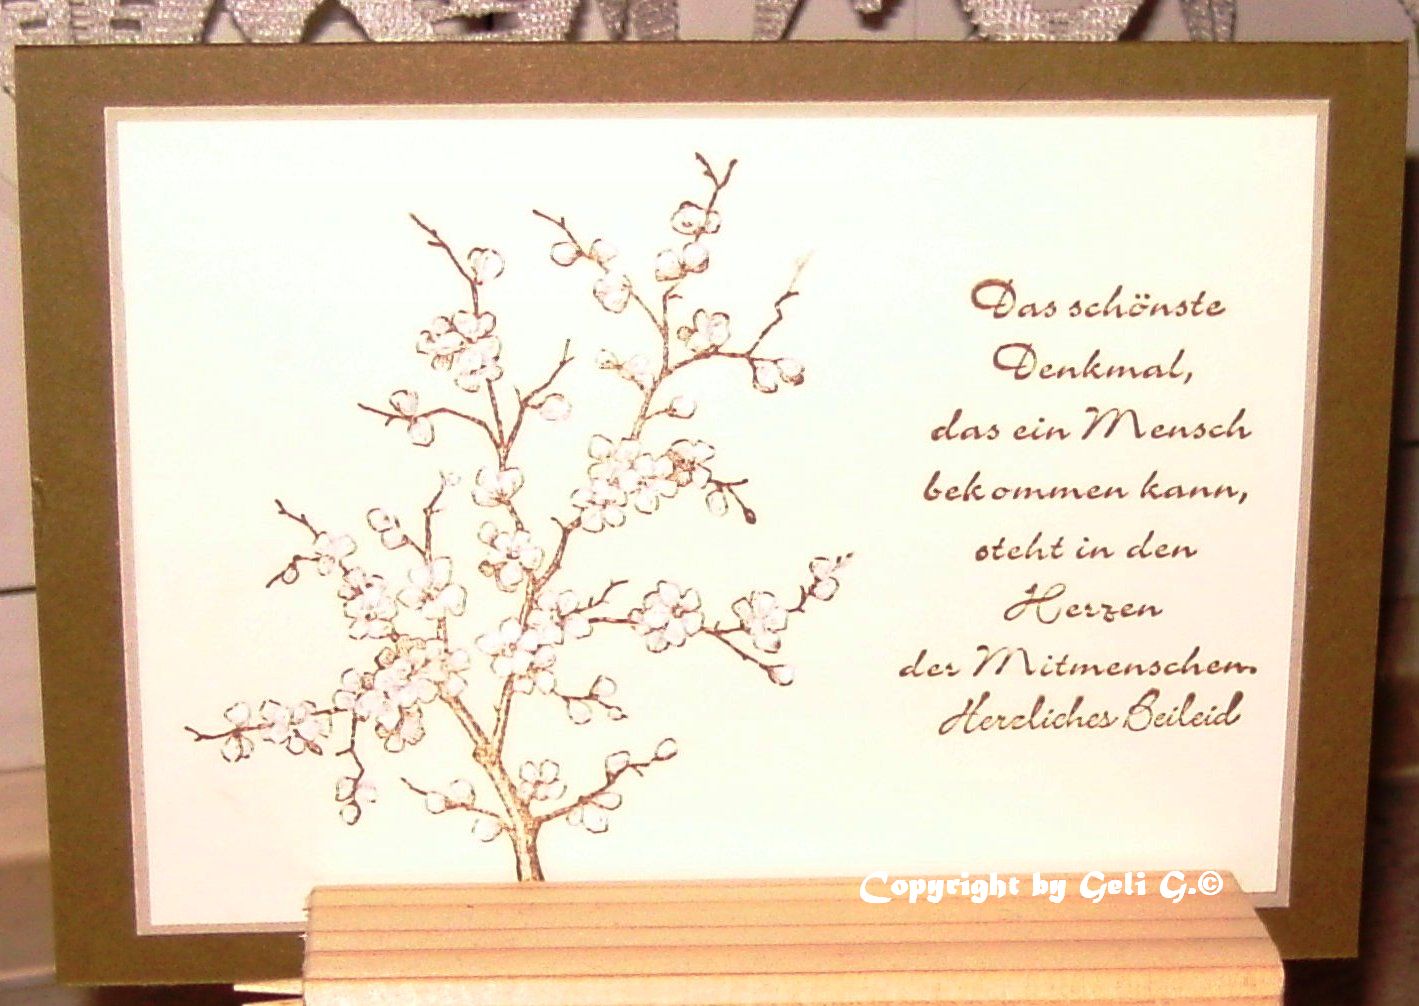 Das schönste
Denkmal,
das ein Mensch
bekommen kann,
steht in den
Herzen
der Mitmenschen.
Herzliches Beileid
Copyright by Geli G.©